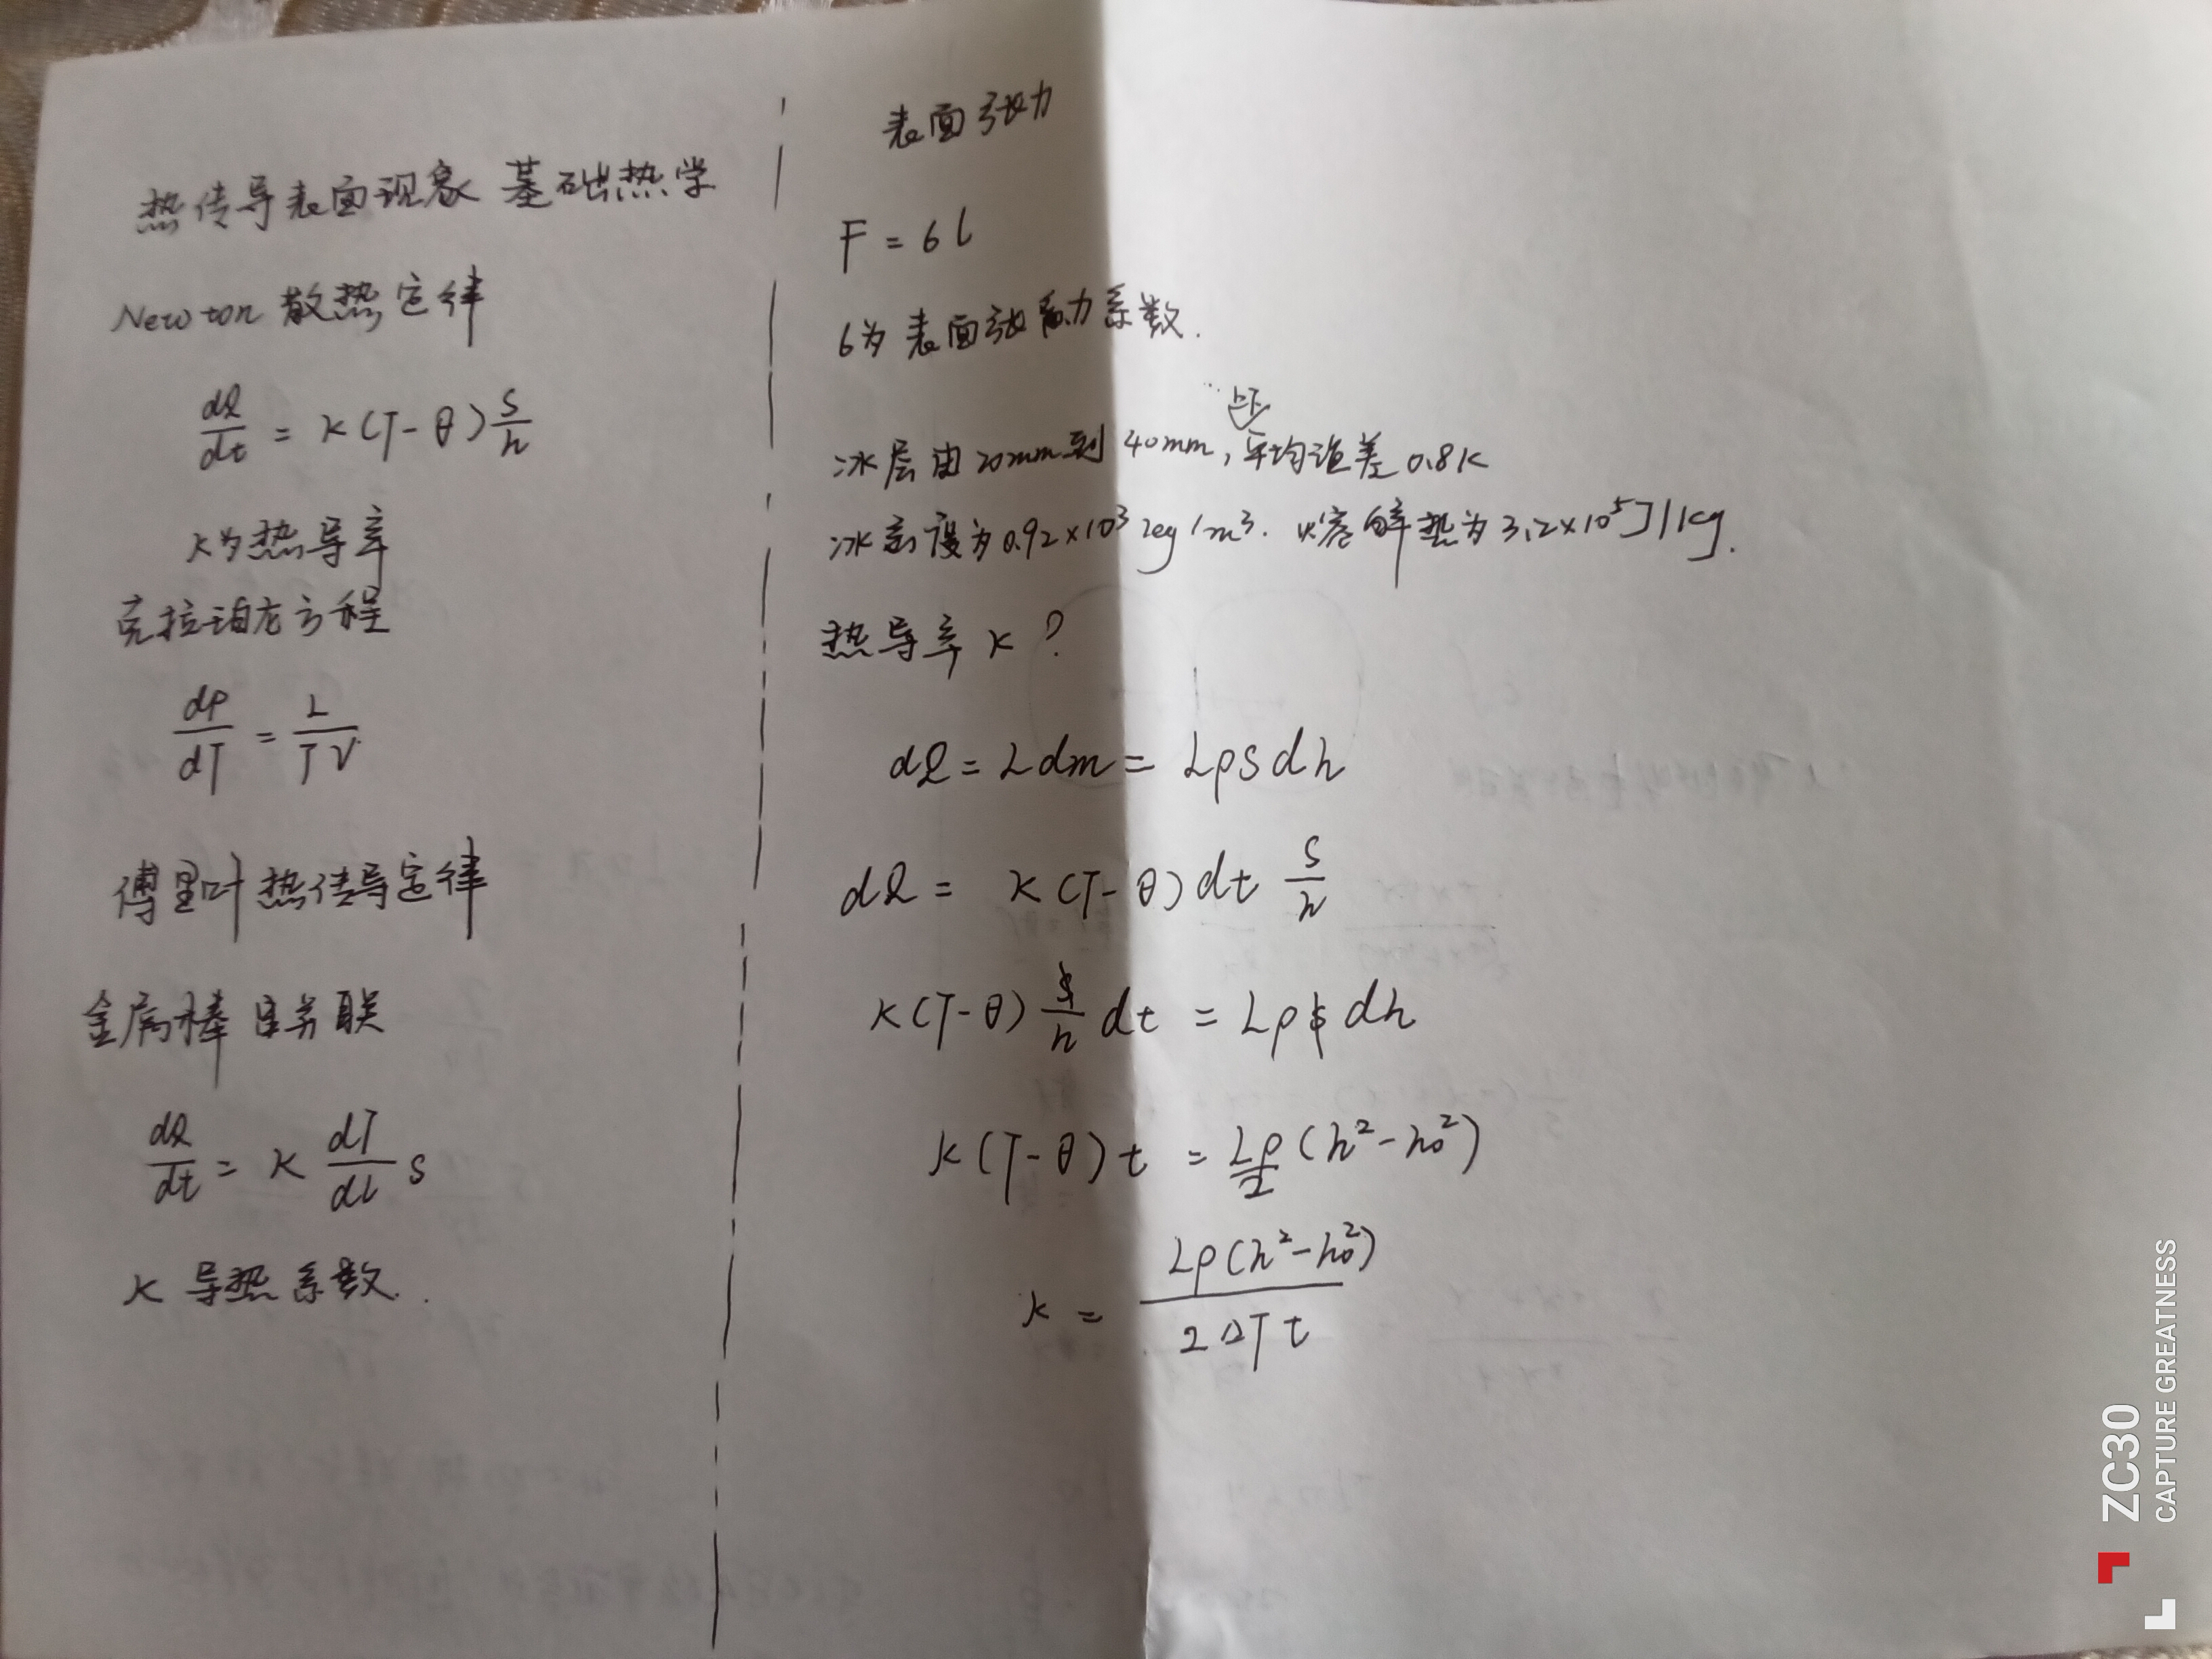 热传导表面现象 基础热学
Newton 散热定律
dQ/dt = K(T-θ) S/h
K为热导率
克拉珀龙方程
dP/dT = L/TV
傅里叶热传导定律
金属棒 串并联
dQ/dt = K dT/dl S
K 导热系数.
表面张力
F = 6l
6为表面张力系数.
上下
冰层由20mm到40mm,平均温差0.8K
冰密度为0.92×10³kg/m³. 熔解热为3.2×10⁵J/kg.
热导率K?
dQ = Ldm = LρSdh
dQ = K(T-θ)dt S/h
K(T-θ) S/h dt = LρS dh
K(T-θ)t = Lρ/2 (h²-h₀²)
K = Lρ(h²-h₀²)/2ΔTt
ZC30
CAPTURE GREATNESS